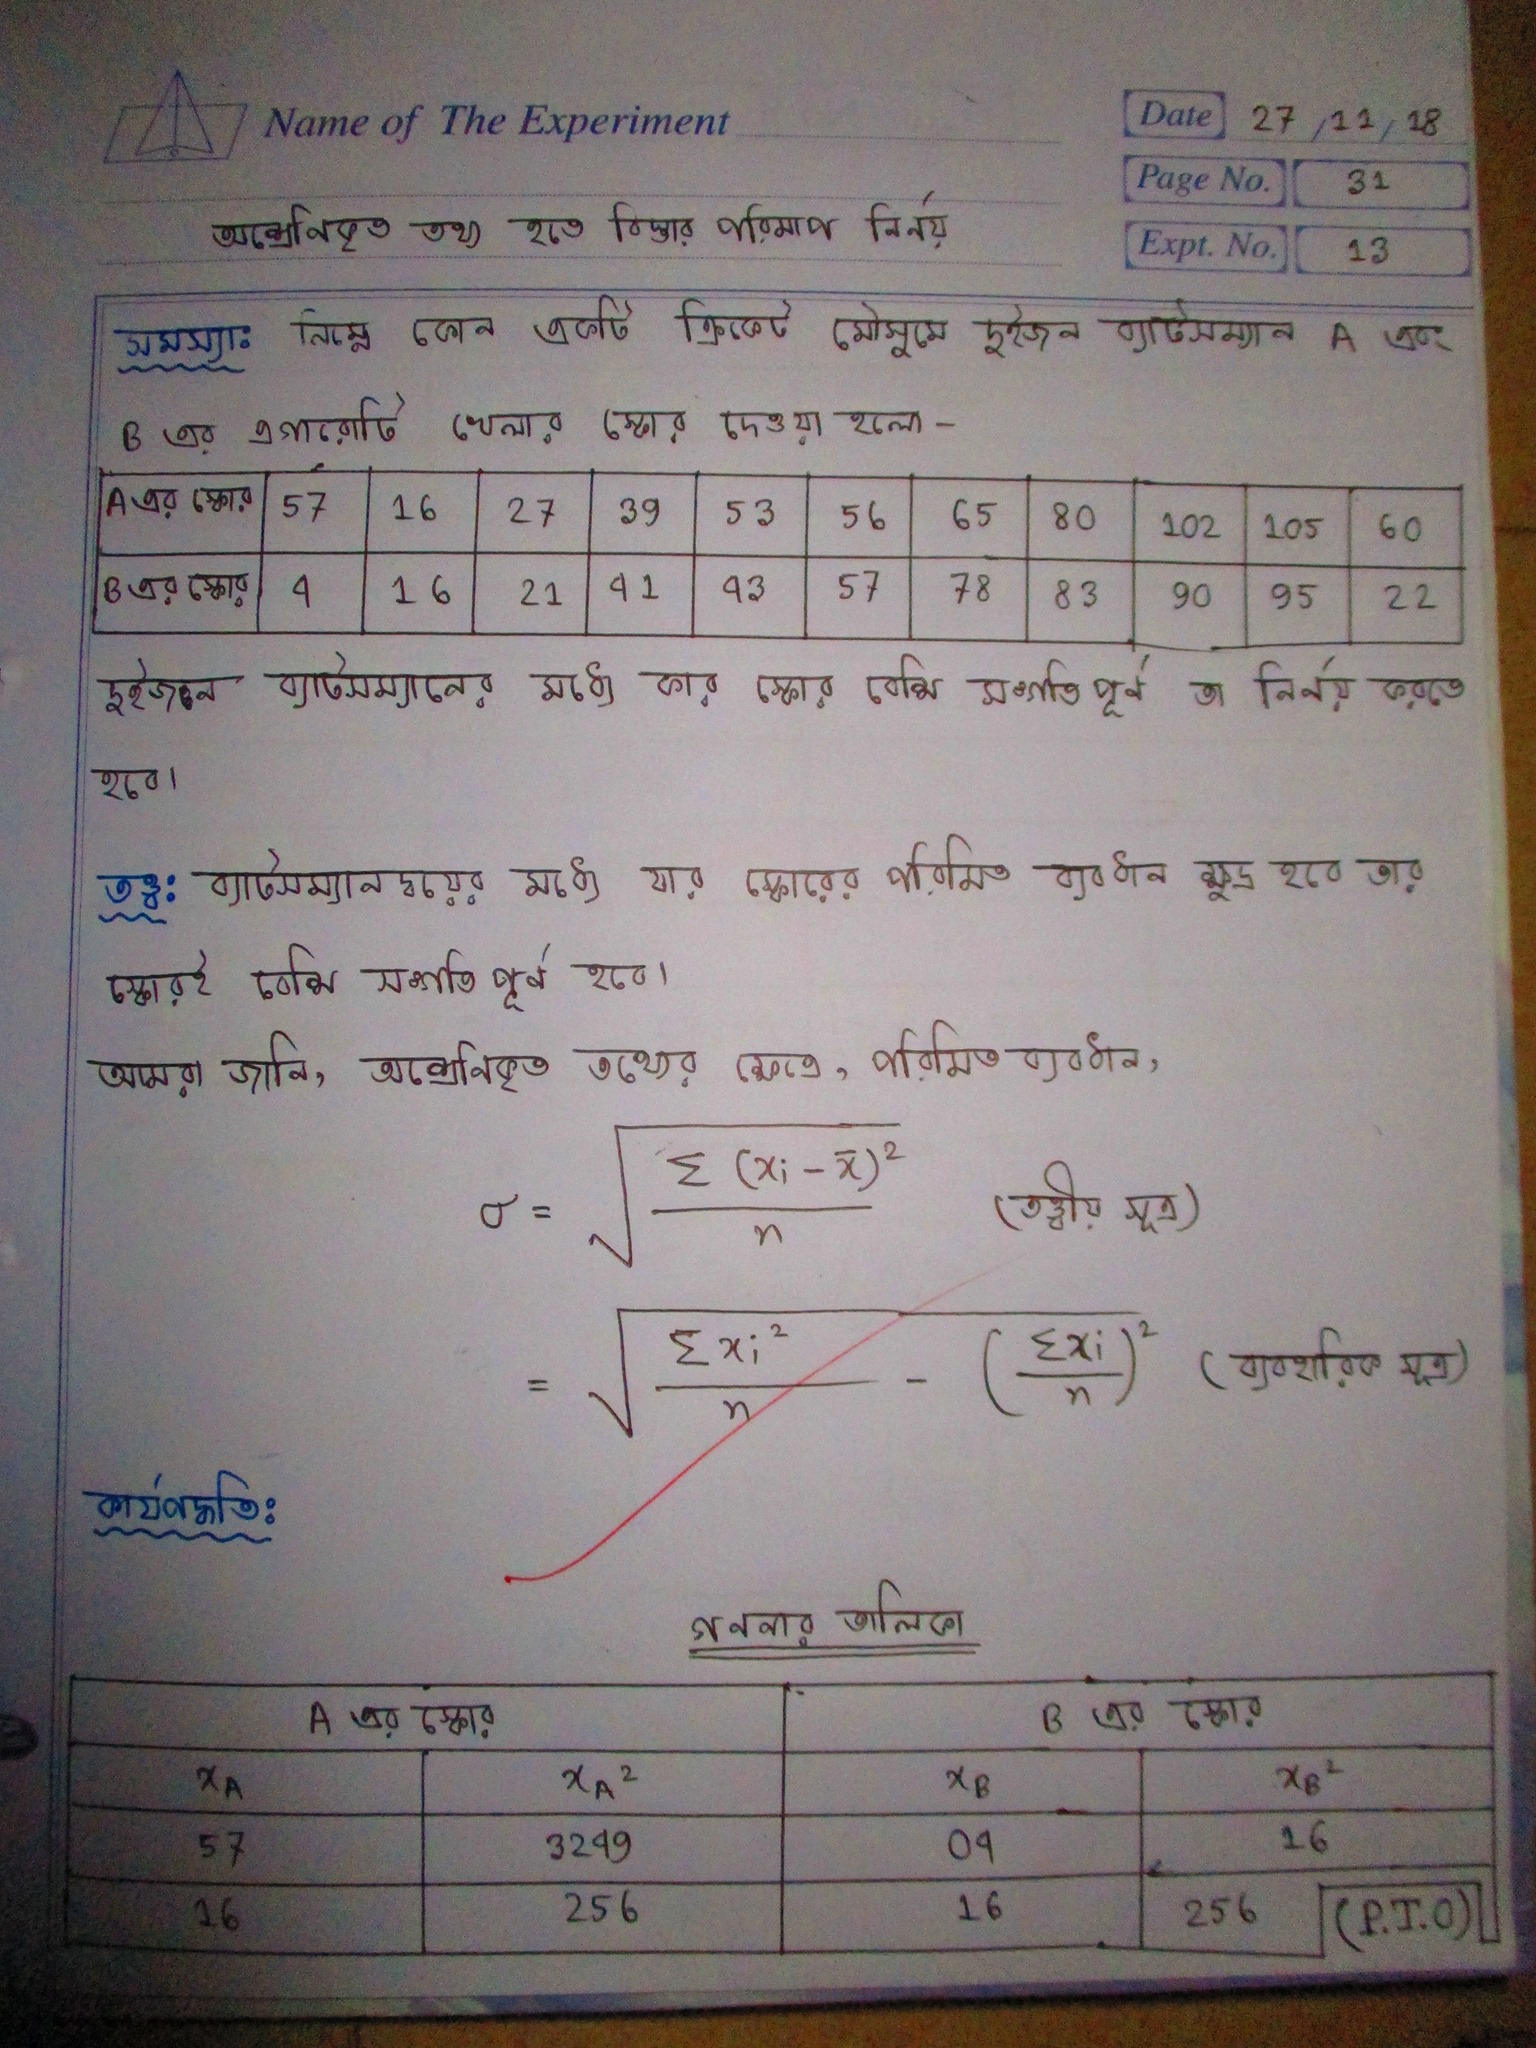 Name of The Experiment
Date 27/11/18
Page No. 31
অশ্রেণিকৃত তথ্য হতে বিস্তার পরিমাপ নির্ণয়
Expt. No. 13
সমস্যা: নিম্নে কোন একটি ক্রিকেট মৌসুমে দুইজন ব্যাটসম্যান A এবং
B এর এগারোটি খেলার স্কোর দেওয়া হলো-
A এর স্কোর 57 16 27 39 53 56 65 80 102 105 60
B এর স্কোর 4 16 21 41 43 57 78 83 90 95 22
দুইজন ব্যাটসম্যানের মধ্যে কার স্কোর বেশি সঙ্গতিপূর্ণ তা নির্ণয় করতে
হবে।
তত্ত্ব: ব্যাটসম্যানদ্বয়ের মধ্যে যার স্কোরের পরিমিত ব্যবধান ক্ষুদ্র হবে তার
স্কোরই বেশি সঙ্গতিপূর্ণ হবে।
আমরা জানি, অশ্রেণিকৃত তথ্যের ক্ষেত্রে, পরিমিত ব্যবধান,
σ = √(Σ(xi - x̄)²/n) (তত্ত্বীয় সূত্র)
= √(Σxi²/n - (Σxi/n)²) (ব্যবহারিক সূত্র)
কার্যপদ্ধতি:
গণনার তালিকা
A এর স্কোর B এর স্কোর
xA xA² xB xB²
57 3249 04 16
16 256 16 256 (P.T.O)